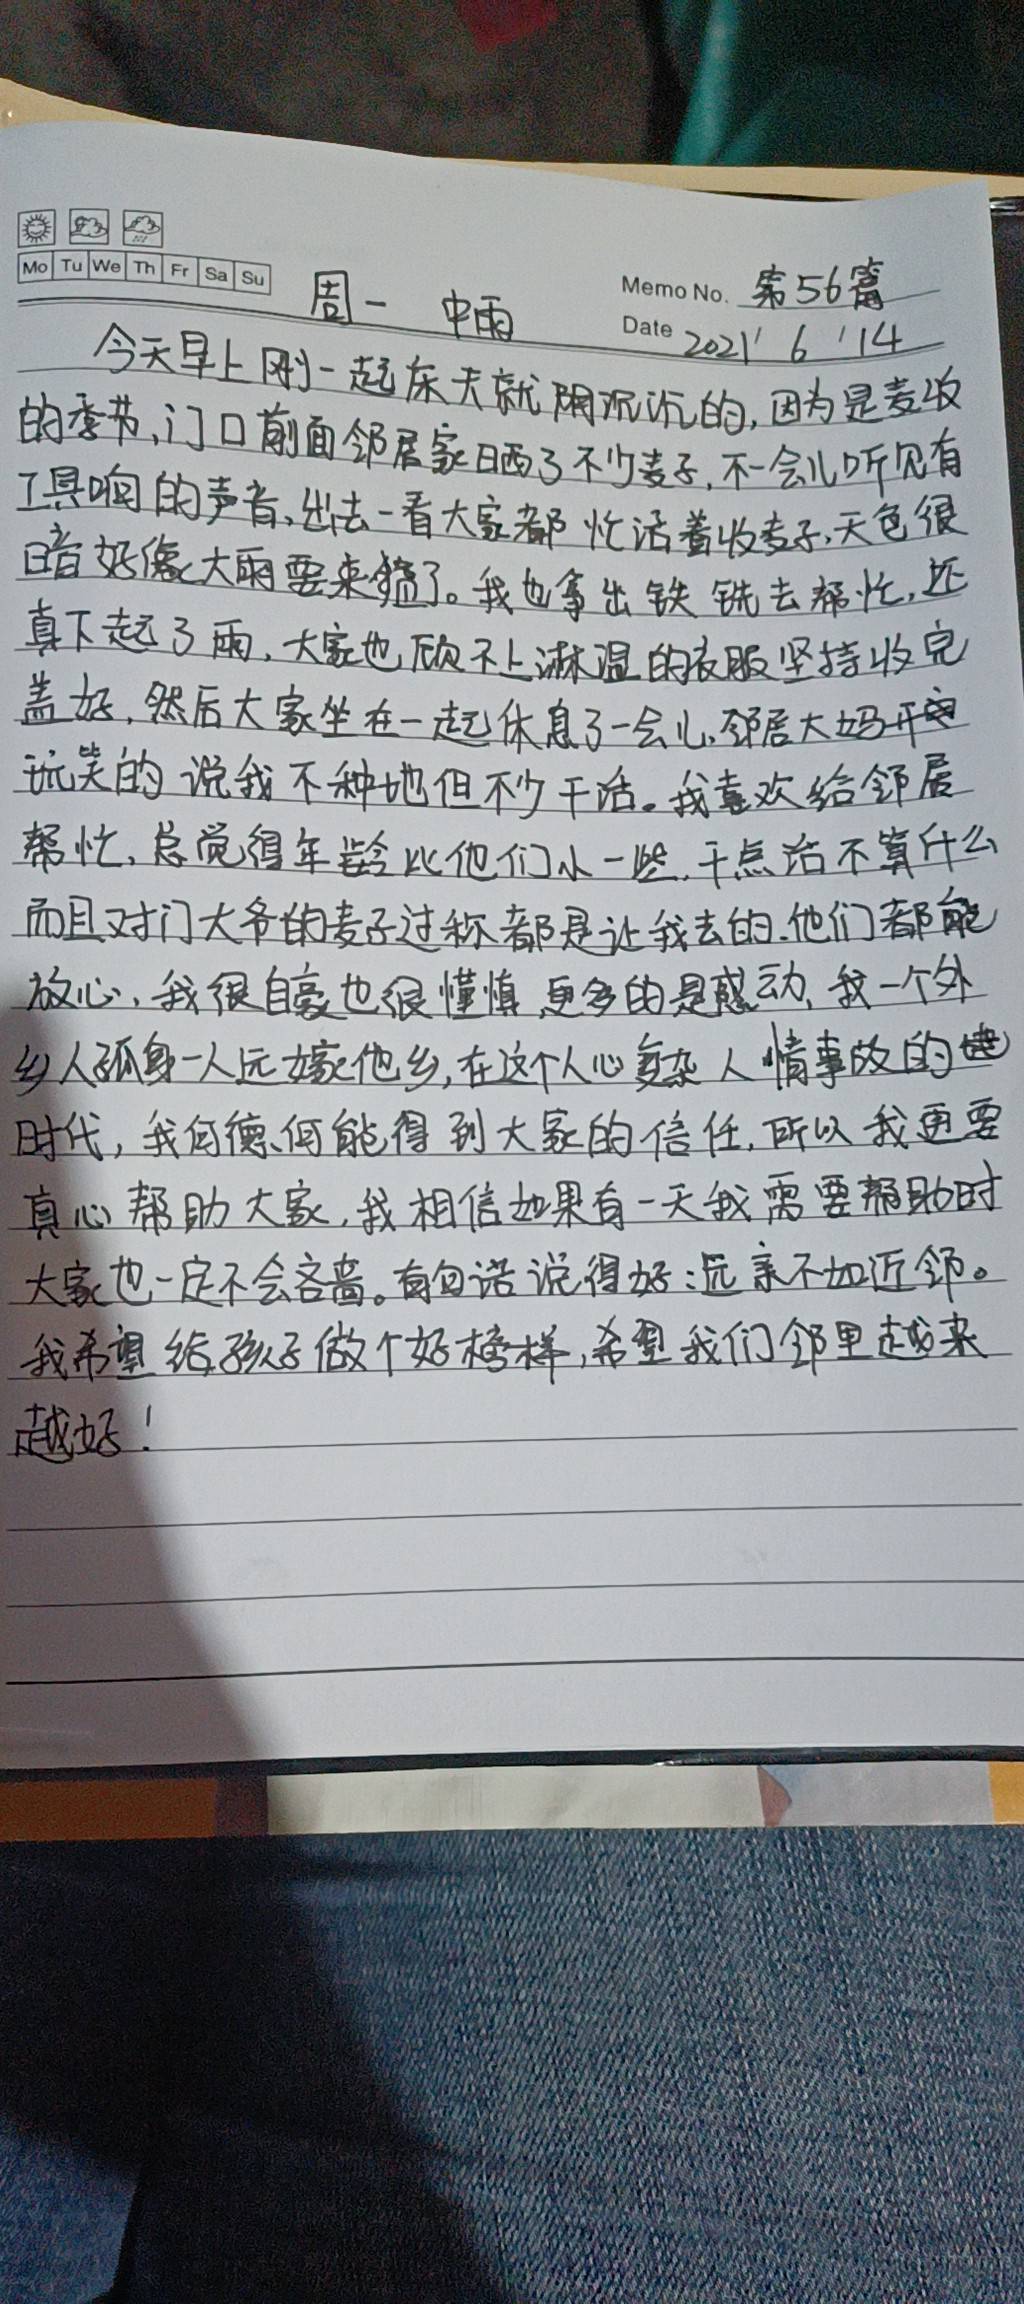 Mo Tu We Th Fr Sa Su
周一 中雨
Memo No. 第56篇
Date 2021' 6 '14
今天早上刚一起床天就阴沉沉的,因为是麦收
的季节,门口前面邻居家晒了不少麦子,不一会儿听见有
工具响的声音,出去一看大家都忙活着收麦子,天色很
暗好像大雨要来了。我也拿出铁锨去帮忙,还
真下起了雨,大家也顾不上淋湿的衣服坚持收完
盖好,然后大家坐在一起休息了一会儿,邻居大妈开
玩笑的说我不种地但不少干活。我喜欢给邻居
帮忙,总觉得年龄比他们小一些,干点活不算什么
而且对门大爷的麦子过称都是让我去的,他们都能
放心,我很自豪也很懂慎,更多的是感动,我一个外
乡人孤身一人远嫁他乡,在这个人心复杂人情事故的
时代,我何德何能得到大家的信任,所以我更要
真心帮助大家,我相信如果有一天我需要帮助时
大家也一定不会吝啬。有句话说得好:远亲不如近邻。
我希望给孩子做个好榜样,希望我们邻里越来
越好!